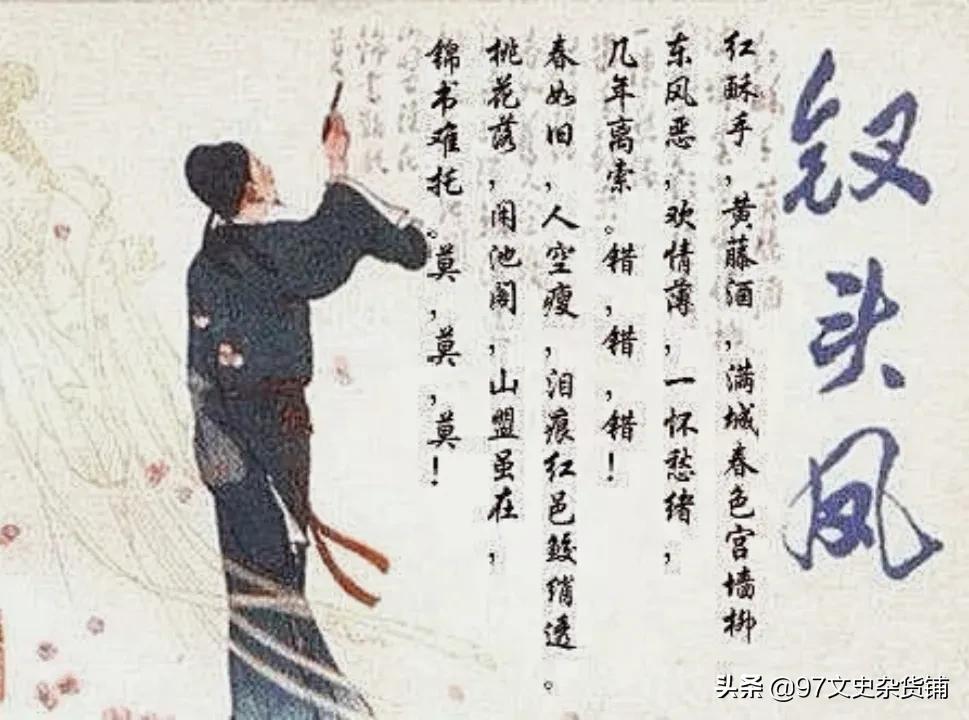 钗头凤
红酥手，黄藤酒，满城春色宫墙柳
东风恶，欢情薄，一怀愁绪，
几年离索。错，错，错！
春如旧，人空瘦，泪痕红邑鲛绡透。
桃花落，闲池阁，山盟虽在，
锦书难托。莫，莫，莫！
头条 @97文史杂货铺